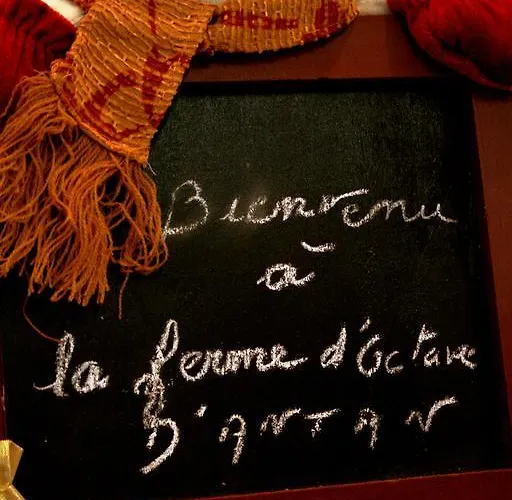 Bienvenu
à
la ferme d'Octave
D'ANTAN